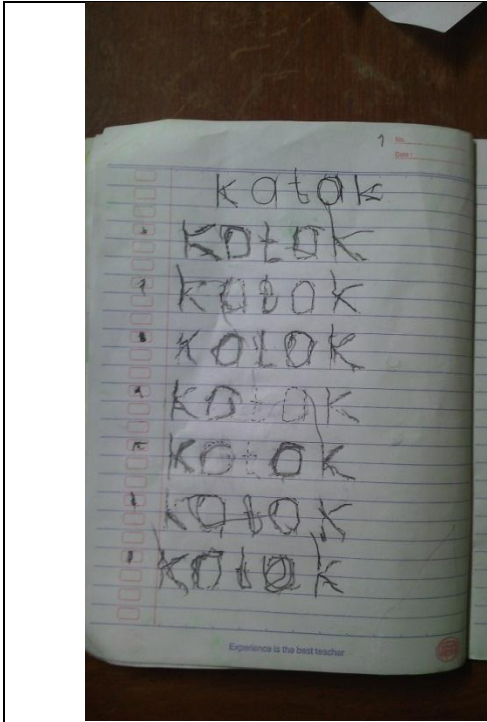 No.
Date :
katak
KotoK
Katok
KotoK
KotoK
KotoK
KotoK
Kotok
Experience is the best teacher